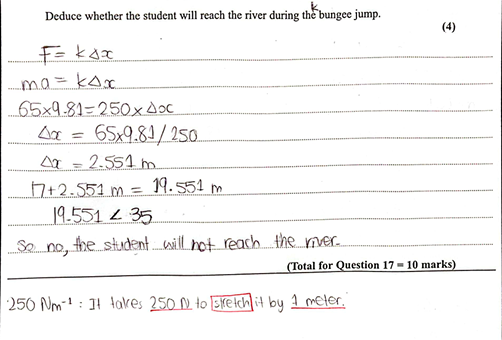 Deduce whether the student will reach the river during the bungee jump.
k
(4)
F = kΔx
ma = kΔx
65×9.81 = 250 × Δx
Δx = 65×9.81/250
Δx = 2.551 m
17+2.551 m = 19.551 m
19.551 < 35
So no, the student will not reach the river.
(Total for Question 17 = 10 marks)
250 Nm⁻¹ : It takes 250 N to stretch it by 1 meter.